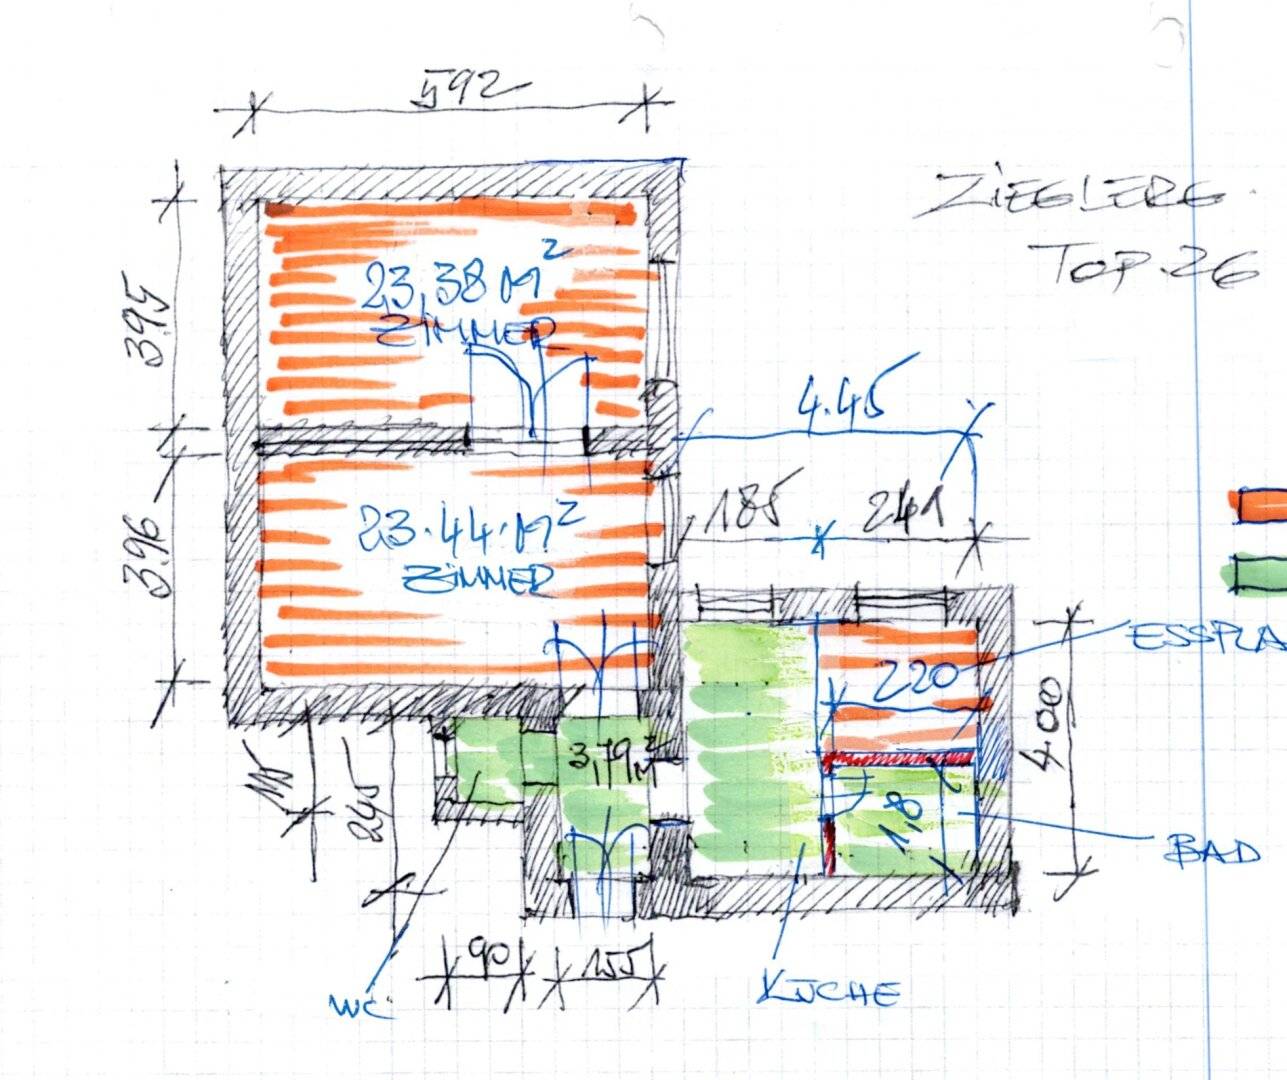 592
ZIEGLERG.
TOP.26
395
23,38 M²
ZIMMER
4.45
185
241
396
23.44 M²
ZIMMER
ESSPLA
220
400
3,79 M²
115
245
1,8
BAD
90
155
WC
KÜCHE